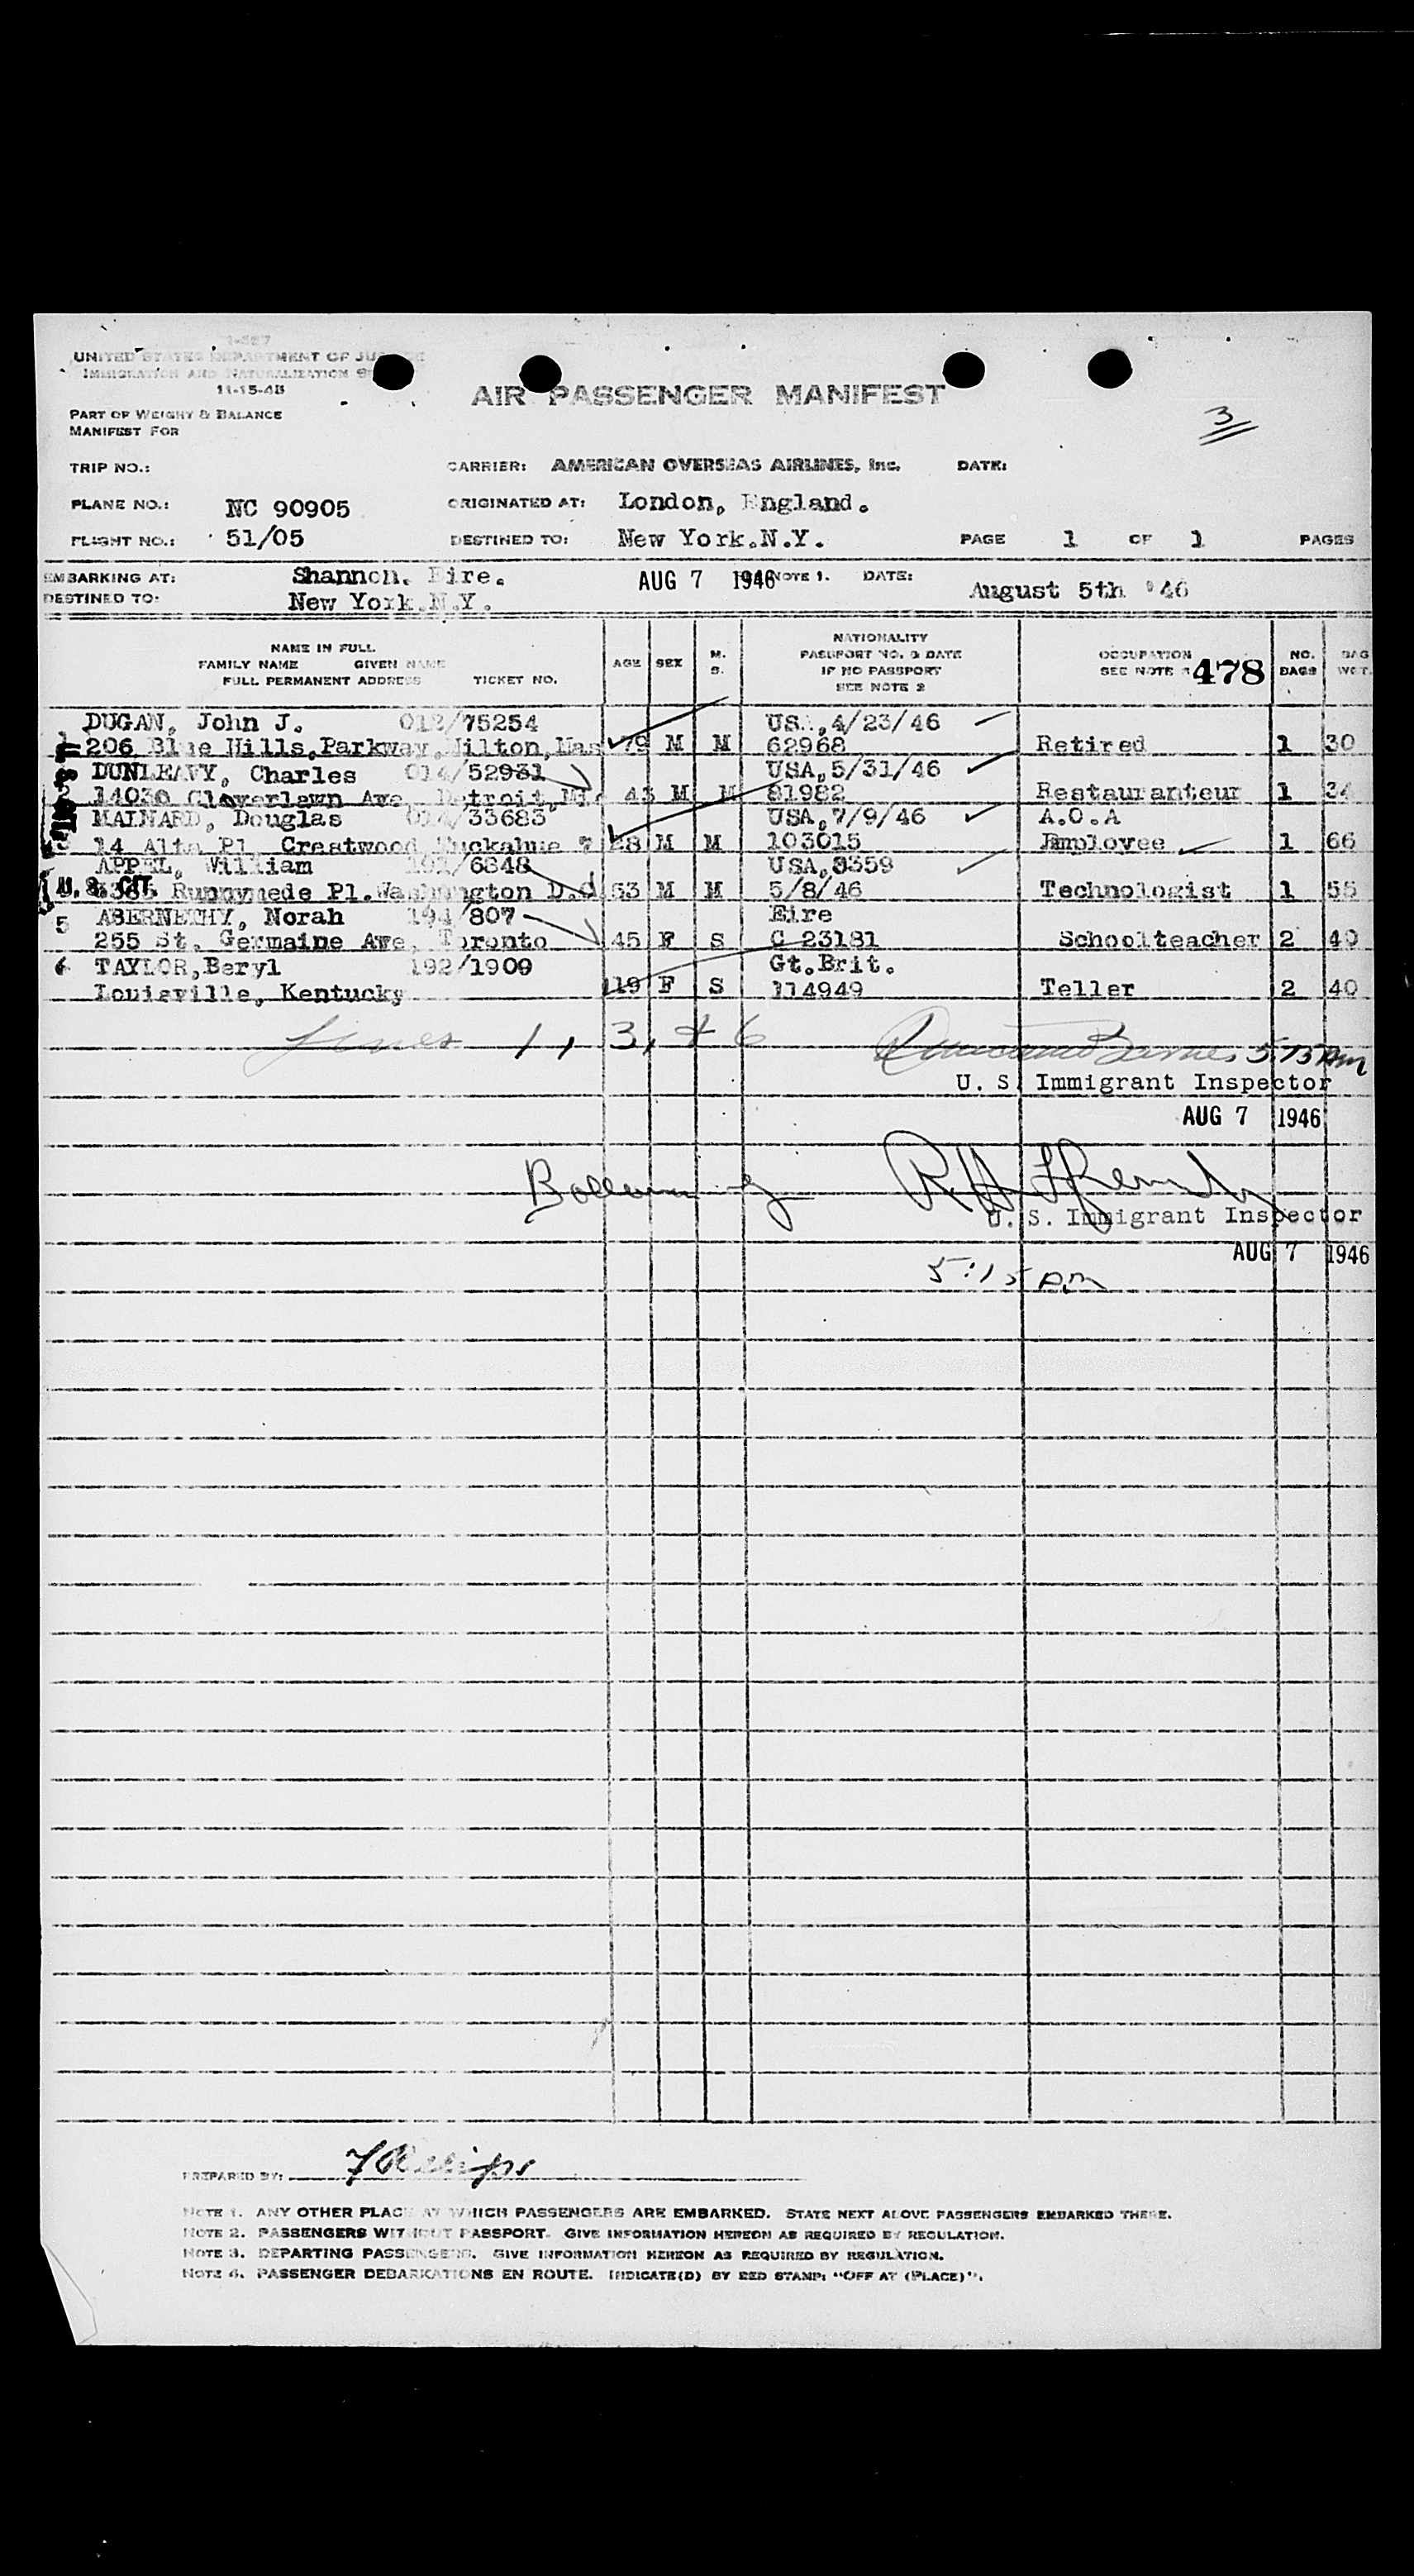 1-557
UNITED STATES DEPARTMENT OF JUSTICE
IMMIGRATION AND NATURALIZATION
11-15-48
AIR PASSENGER MANIFEST
PART OF WEIGHT & BALANCE
MANIFEST FOR
3
TRIP NO.: CARRIER: AMERICAN OVERSEAS AIRLINES, Inc. DATE:
PLANE NO.: NC 90905 ORIGINATED AT: London, England.
FLIGHT NO.: 51/05 DESTINED TO: New York.N.Y. PAGE 1 OF 1 PAGES
EMBARKING AT: Shannon. Eire. AUG 7 1946 NOTE 1. DATE: August 5th '46
DESTINED TO: New York.N.Y.
NAME IN FULL
FAMILY NAME GIVEN NAME
FULL PERMANENT ADDRESS TICKET NO.
AGE SEX M. S.
NATIONALITY
PASSPORT NO. & DATE
IF NO PASSPORT
SEE NOTE 2
OCCUPATION
SEE NOTE 478
NO. BAGS
BAG WGT.
DUGAN, John J. 012/75254 USA,4/23/46
206 Blue Hills,Parkway,Milton,Mas 79 M M 62968 Retired 1 30
DUNLEAVY, Charles 014/52931 USA,5/31/46
2 14030 Cloverlawn Ave, Detroit,Mic 43 M M 81982 Restauranteur 1 34
MAINARD, Douglas 014/33683 USA,7/9/46 A.O.A
3 14 Alta Pl. Crestwood Tuckahoe 7 28 M M 103015 Employee 1 66
APPEL, William 191/6848 USA,8359
U. S. CIT. Runnymede Pl.Washington D.C 53 M M 5/8/46 Technologist 1 55
ABERNETHY, Norah 194/807 Eire
5 255 St. Germaine Ave, Toronto 45 F S C 23181 Schoolteacher 2 40
6 TAYLOR,Beryl 192/1909 Gt.Brit.
Louisville, Kentucky 19 F S 114949 Teller 2 40
Lines 1, 3, + 6 Barnes 5:15 Am
U. S. Immigrant Inspector
AUG 7 1946
U. S. Immigrant Inspector
AUG 7 1946
5:15 am
PREPARED BY:
NOTE 1. ANY OTHER PLACE AT WHICH PASSENGERS ARE EMBARKED. STATE NEXT ABOVE PASSENGERS EMBARKED THERE.
NOTE 2. PASSENGERS WITHOUT PASSPORT. GIVE INFORMATION HEREON AS REQUIRED BY REGULATION.
NOTE 3. DEPARTING PASSENGERS. GIVE INFORMATION HEREON AS REQUIRED BY REGULATION.
NOTE 4. PASSENGER DEBARKATIONS EN ROUTE. INDICATE(D) BY RED STAMP: "OFF AT (PLACE)".